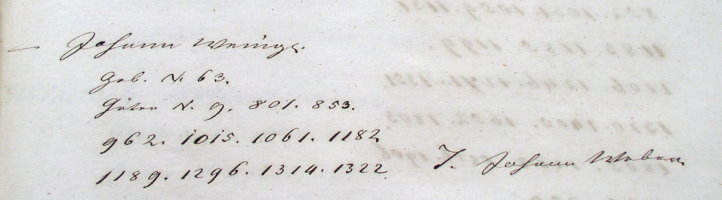 Johann Weingr.
Geb. N. 63.
Güter N. 9. 801. 853.
962. 1015. 1061. 1182
1189. 1296. 1314. 1322.
7. Johann Weber